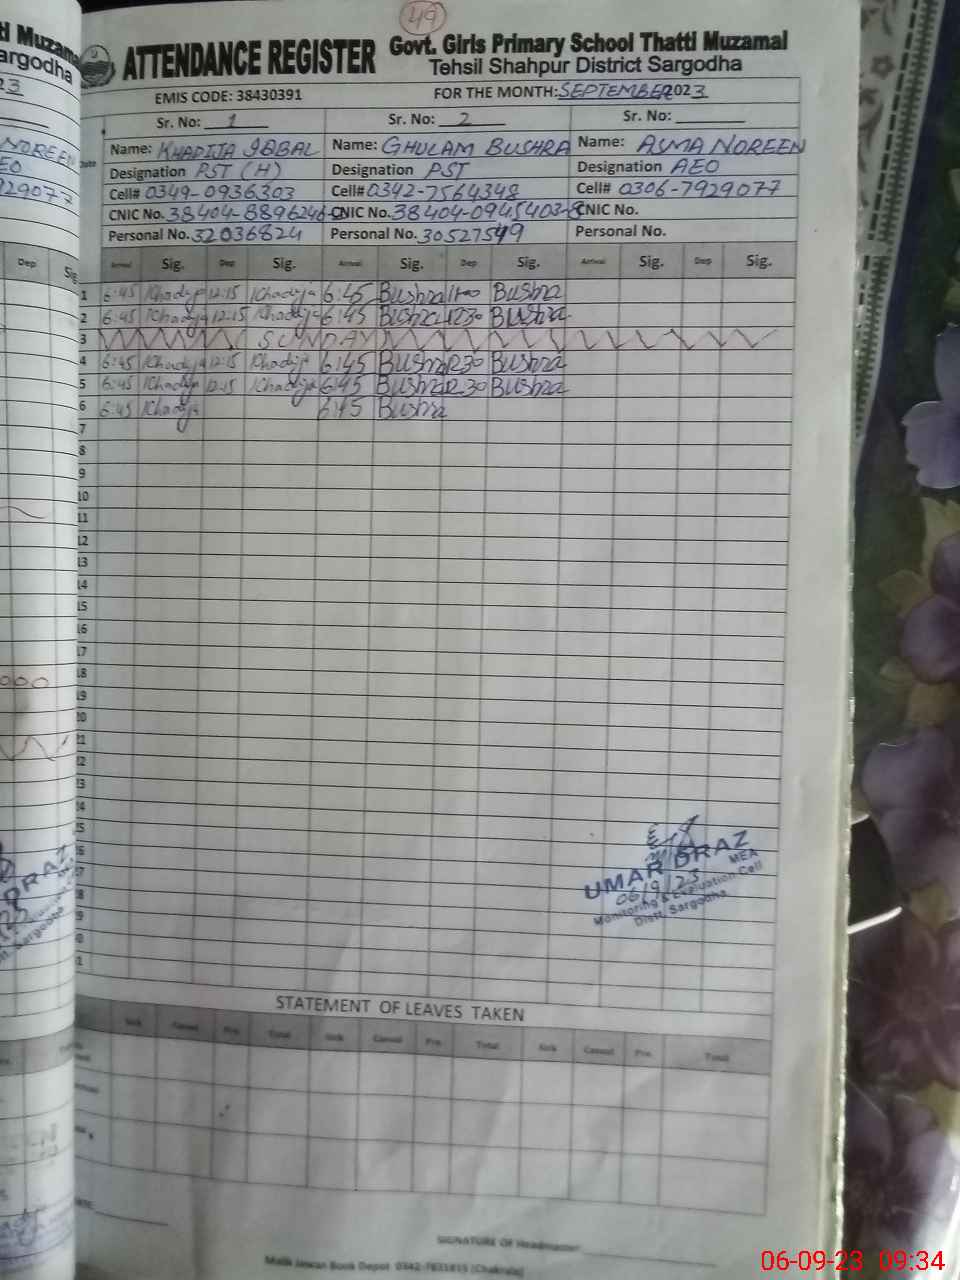 49
ATTENDANCE REGISTER Govt. Girls Primary School Thatti Muzamal
Tehsil Shahpur District Sargodha
EMIS CODE: 38430391 FOR THE MONTH: SEPTEMBER 2023
Sr. No: 1 Sr. No: 2 Sr. No:
Name: KHADIJA IQBAL Name: GHULAM BUSHRA Name: ASMA NOREEN
Designation PST (H) Designation PST Designation AEO
Cell# 0349-0936303 Cell# 0342-7564348 Cell# 0306-7929077
CNIC No. 38404-8896246-0 CNIC No. 38404-0945403-8 CNIC No.
Personal No. 32036824 Personal No. 30527549 Personal No.
Date Arrival Sig. Dep Sig. Arrival Sig. Dep Sig. Arrival Sig. Dep Sig.
1 6:45 Khadija 12:15 Khadija 6:45 Bushra Bushra
2 6:45 Khadija 12:15 Khadija 6:45 Bushra 12 30 Bushra
3 SUNDAY
4 6:45 Khadija 12:15 Khadija 6:45 Bushra 12 30 Bushra
5 6:45 Khadija 12:15 Khadija 6:45 Bushra 12 30 Bushra
6 6:45 Khadija 6:45 Bushra
7
8
9
10
11
12
13
14
15
16
17
18
19
20
21
22
23
24
25
UMAR DRAZ
MEA
06/9/23
Monitoring & Evaluation Cell
Distt. Sargodha
STATEMENT OF LEAVES TAKEN
Sick Casual Pre. Total Sick Casual Pre. Total Sick Casual Pre. Total
SIGNATURE OF Headmaster
Malik Jawan Book Depot 0342-7831815 (Chakrala)
06-09-23 09:34